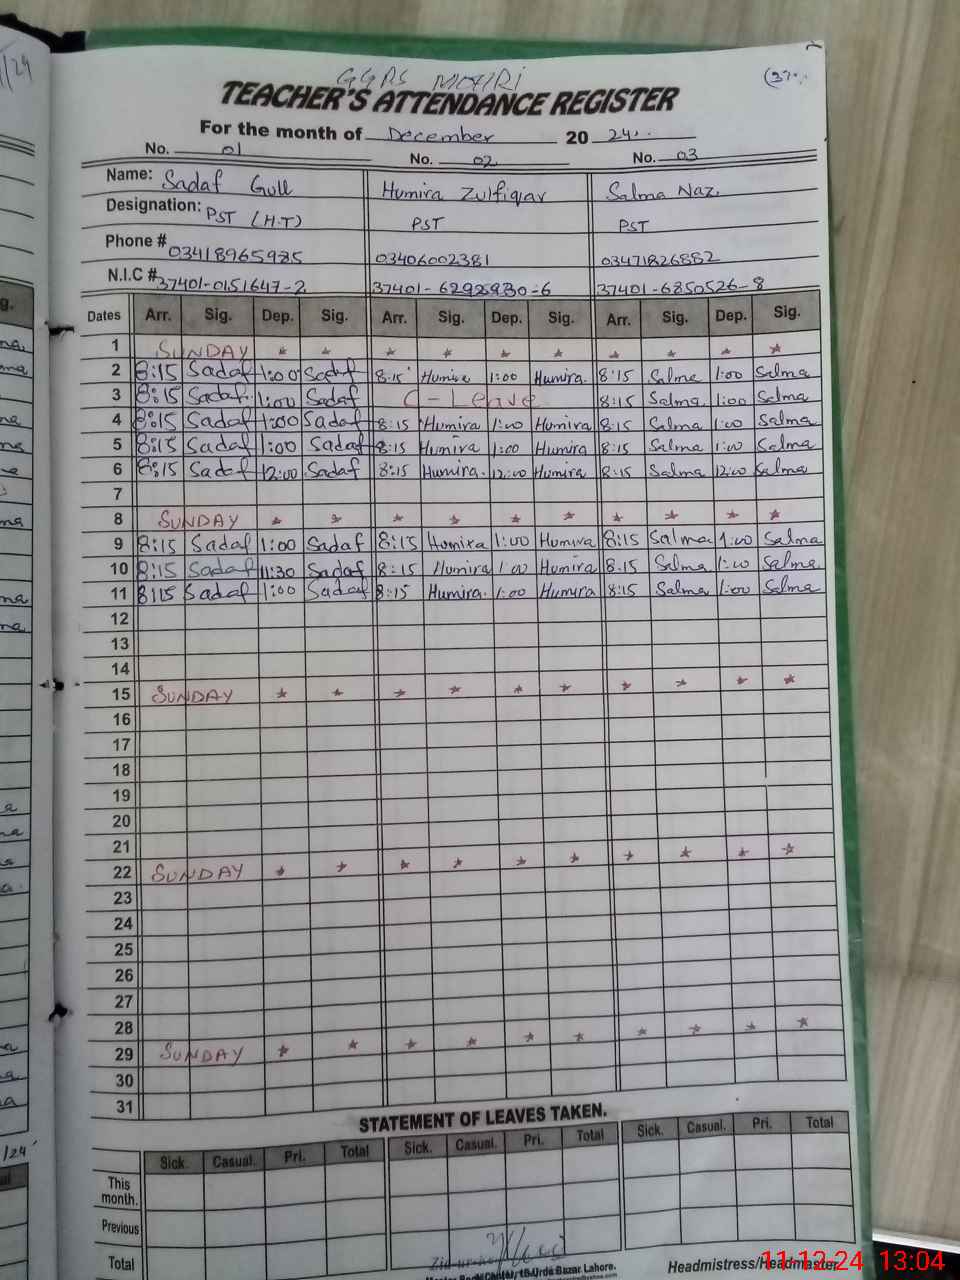 GGPS MOHRI
TEACHER'S ATTENDANCE REGISTER
For the month of December 20 24
No. 01 No. 02 No. 03
Name: Sadaf Gull Humira Zulfiqar Salma Naz
Designation: PST (H.T) PST PST
Phone # 03418965985 03406002381 03471826882
N.I.C # 37401-0151647-2 37401-6292930-6 37401-6850526-8
Dates Arr. Sig. Dep. Sig. Arr. Sig. Dep. Sig. Arr. Sig. Dep. Sig.
1 SUNDAY * * * * * * * * * *
2 8:15 Sadaf 1:00 Sadaf 8:15 Humira 1:00 Humira 8:15 Salma 1:00 Salma
3 8:15 Sadaf 1:00 Sadaf C-Leave 8:15 Salma 1:00 Salma
4 8:15 Sadaf 1:00 Sadaf 8:15 Humira 1:00 Humira 8:15 Salma 1:00 Salma
5 8:15 Sadaf 1:00 Sadaf 8:15 Humira 1:00 Humira 8:15 Salma 1:00 Salma
6 8:15 Sadaf 12:00 Sadaf 8:15 Humira 12:00 Humira 8:15 Salma 12:00 Salma
7
8 SUNDAY * * * * * * * * * *
9 8:15 Sadaf 1:00 Sadaf 8:15 Humira 1:00 Humira 8:15 Salma 1:00 Salma
10 8:15 Sadaf 11:30 Sadaf 8:15 Humira 1:00 Humira 8:15 Salma 1:00 Salma
11 8:15 Sadaf 1:00 Sadaf 8:15 Humira 1:00 Humira 8:15 Salma 1:00 Salma
12
13
14
15 SUNDAY * * * * * * * * * *
16
17
18
19
20
21
22 SUNDAY * * * * * * * * * *
23
24
25
26
27
28
29 SUNDAY * * * * * * * * * *
30
31
STATEMENT OF LEAVES TAKEN.
Sick. Casual. Pri. Total Sick. Casual. Pri. Total Sick. Casual. Pri. Total
This month.
Previous
Total
Urdu Bazar Lahore.
Headmistress/Headmaster
11-12-24 13:04